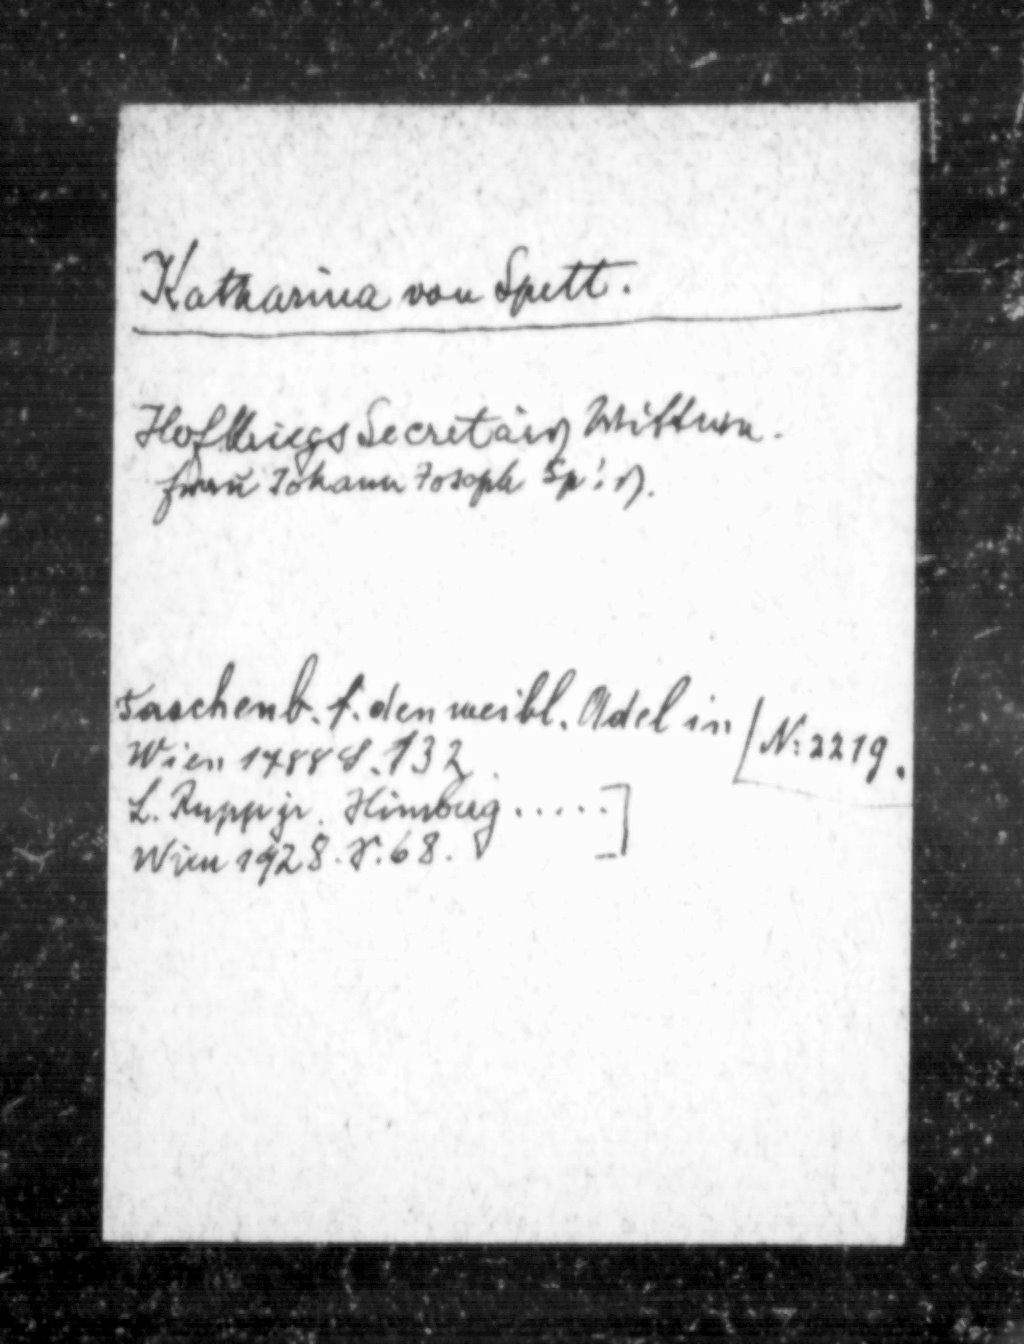 Katharina von Spett.
HofkriegsSecretärs Wittwe.
Frau Johann Joseph Sp!s.
Taschenb. f. den weibl. Adel in
Wien 1788 S. 132.
L. Rupp jr. Himberg .....]
Wien 1928. S. 68.
N: 2219.